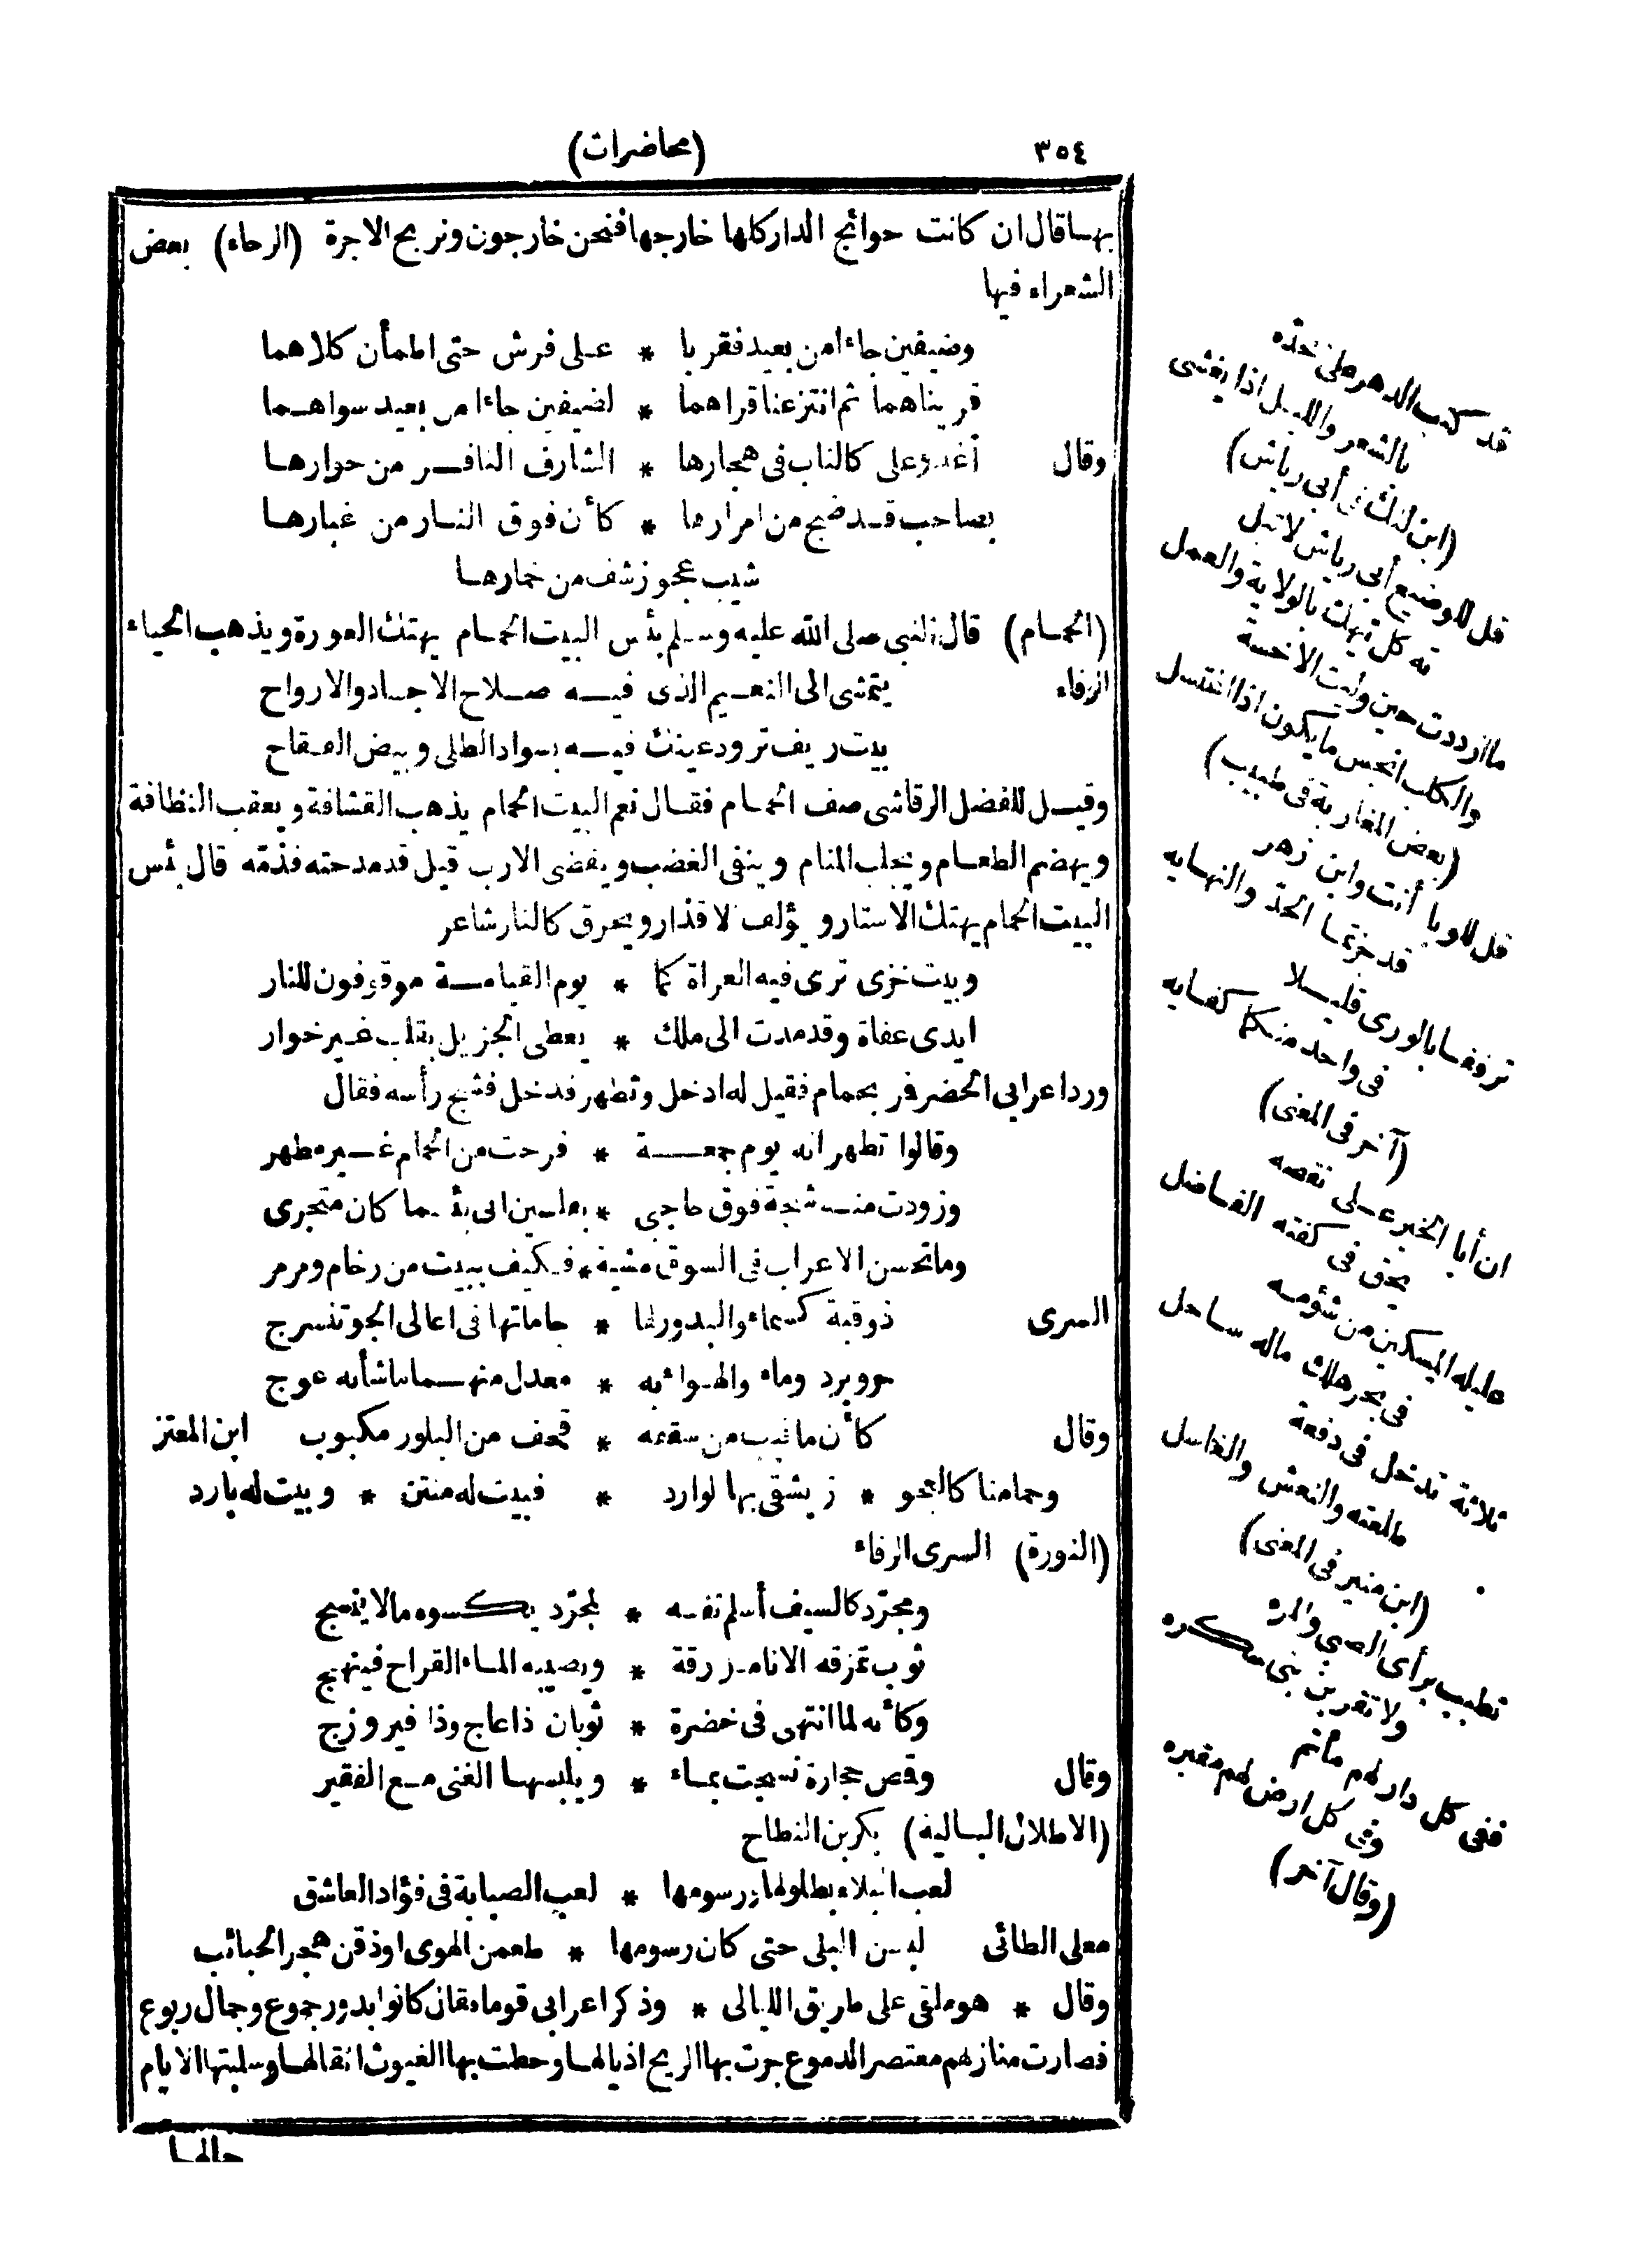 ٣٥٤
(محاضرات)
بهاقال ان كانت حوائج الدار كلها خارجها فنحن خارجون ونربح الاجرة (الرحاء) بعض
الشعراء فيها
وضيفين جاءا من بعيد فقربا * على فرش حتى اطمأن كلاهما
قريناهما ثم انتزعنا قراهما * لضيفين جاءا من بعيد سواهما
وقال أغدو على كالناب فى هجارها * الشارف النافر من حوارها
بصاحب قد ضج من امرارها * كأن فوق النار من غبارها
شيب عجوز شف من خمارها
(الحمام) قال النبى صلى الله عليه وسلم بئس البيت الحمام يهتك العورة ويذهب الحياء
الرفاء يتمشى الى النعيم الذى فيه صلاح الاجساد والارواح
بيت ريف ترود عينك فيه بسواد الطلى وبيض الصفاح
وقيل للفضل الرقاشى صف الحمام فقال نعم البيت الحمام يذهب القشافة ويعقب النظافة
ويهضم الطعام ويجلب المنام وينفى الغضب ويقضى الارب قيل قد مدحته فذمه قال بئس
البيت الحمام يهتك الاستار ويؤلف الاقذار ويحرق كالنار شاعر
وبيت خزى ترى فيه العراة كما * يوم القيامة موقوفون للنار
ايدى عفاة وقد مدت الى ملك * يعطى الجزيل بقلب غير خوار
ورد اعرابى الحضر فمر بحمام فقيل له ادخل وتطهر فدخل فشج رأسه فقال
وقالوا تطهر انه يوم جمعة * فرحت من الحمام غير مطهر
وزودت منه شجة فوق حاجبى * بفلسين انى بئسما كان متجرى
وما تحسن الاعراب فى السوق مشية * فكيف ببيت من رخام ومرمر
السرى ذو قبة كسماء والبدور لها * جاماتها فى اعالى الجو تنسرج
حر وبرد وماء والهواء به * معدل منهما ما شأنه عوج
وقال كأن ما قبب من سقفه * قحف من البلور مكبوب ابن المعتز
وحمامنا كالعجو * ز يشقى بها الوارد * فبيت له منتن * وبيت له بارد
(النورة) السرى الرفاء
ومجرد كالسيف أسلم نفسه * لمجرد يكسوه ما لا ينسج
ثوب تمزقه الانامل رقة * ويصيبه الماء القراح فينهج
وكأنه لما انتهى فى خضرة * ثوبان ذا عاج وذا فيروزج
وقال وقص حجارة نسجت بماء * ويلبسها الغنى مع الفقير
(الاطلال البالية) بكر بن النطاح
لعب البلاء بطلولها ورسومها * لعب الصبابة فى فؤاد العاشق
معلى الطائى لبسن البلى حتى كان رسومها * طعمن الهوى اوذقن هجر الحبائب
وقال * هو ملقى على طريق الليالى * وذكر اعرابى قوما فقال كانوا بدور جموع وجمال ربوع
فصارت منازلهم معتصر الدموع جرت بها الريح اذيالها وحطت بها الغيوث اثقالها وسلبتها الايام
جالها
قد كتب الدهر على خده
بالشعر والليل اذا يغشى
(ابن لنكك فى أبى رياش)
قل للوضيع أبى رياش لا تبل
ته كل تيهك بالولاية والعمل
ما ازددت حين وليت الا خسة
والكلب انجس ما يكون اذا اغتسل
(بعض المغاربة فى طبيب)
قل للوبا أنت وابن زهر
قد جزتما الحد والنهايه
ترفقا بالورى قليلا
فى واحد منكما كفايه
(آخر فى المعنى)
ان أبا الخير على نقصه
يخف فى كفته الفاضل
عليله المسكين من شؤمه
فى بحر هلك ماله ساحل
ثلاثة تدخل فى دفعة
طلعته والنعش والغاسل
(ابن منير فى المعنى)
تطيب برأى الصبى والمره
ولا تقربن بنى عسكره
ففى كل دار لهم مأتم
وفى كل ارض لهم مقبره
(وقال آخر)